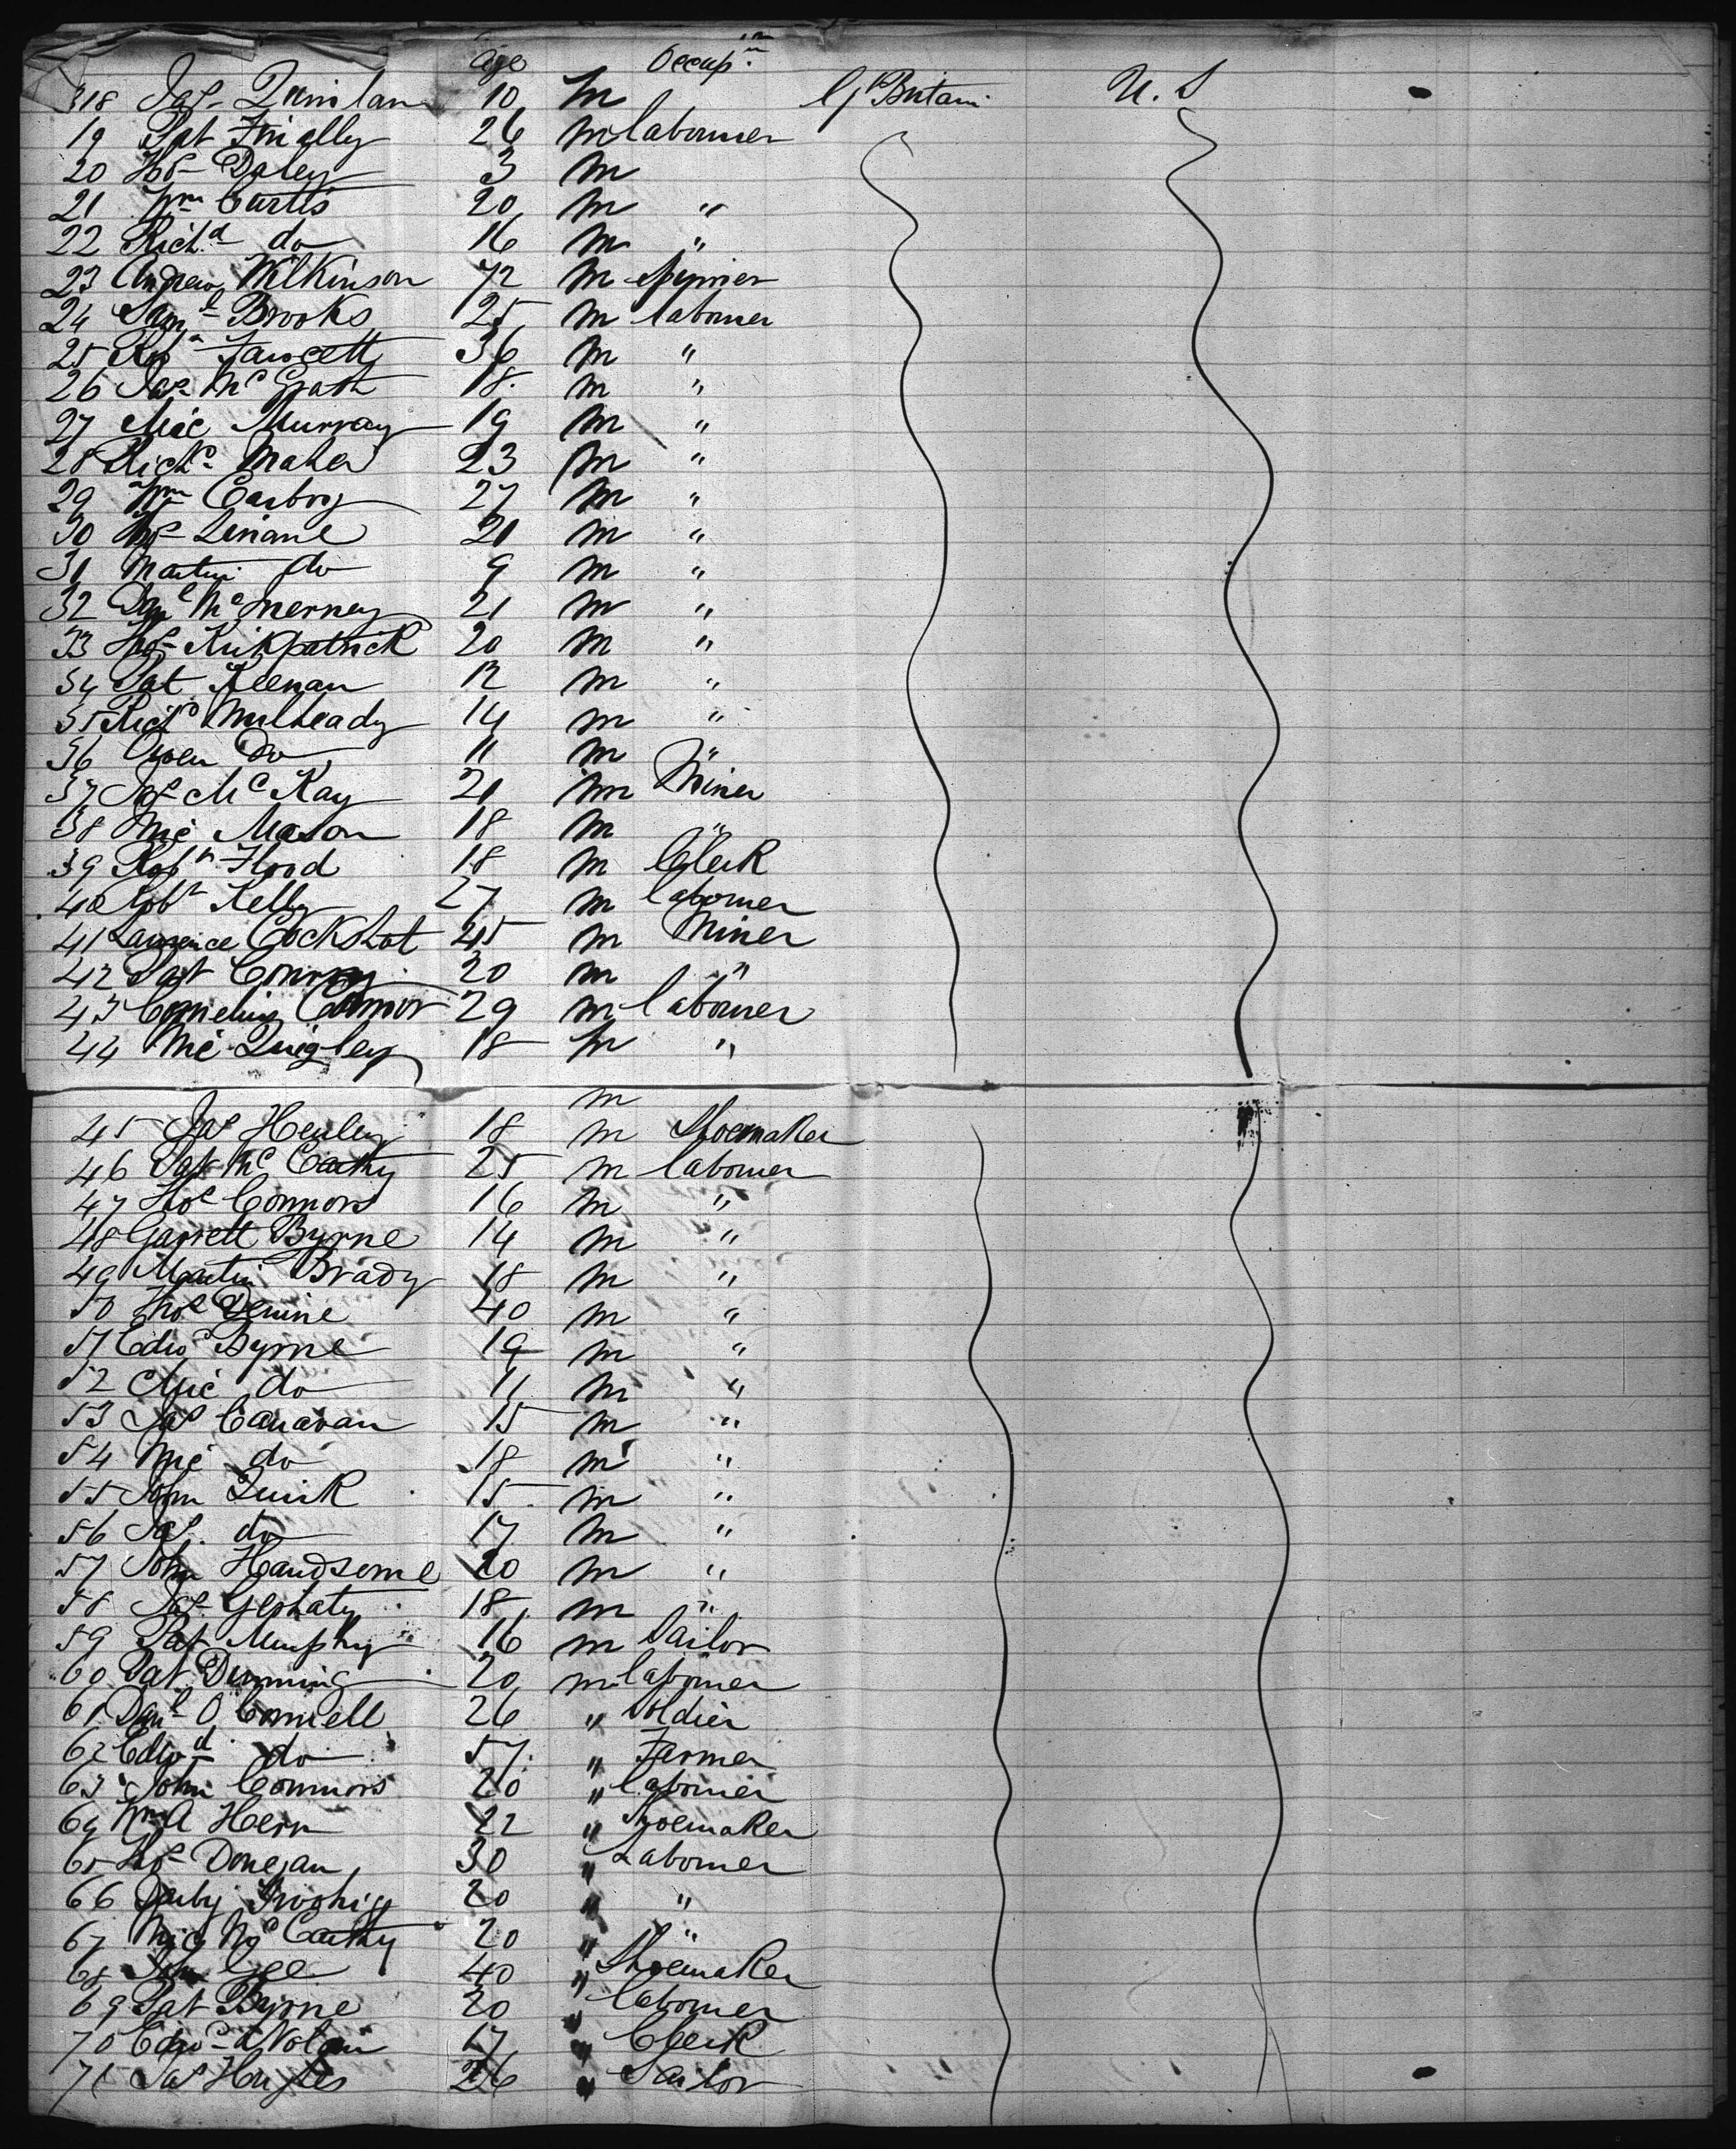 Age Occup.n
318 Jas Quinlan 10 m Gt Britain U.S
19 Pat Finally 26 m labourer
20 Ths Daley 3 m
21 Wm Curtis 20 m "
22 Richd do 16 m "
23 Andrew Wilkinson 72 m Spinner
24 Saml Brooks 25 m labourer
25 Fawcett 36 m "
26 Jas McGrath 18 m "
27 Mic Murray 19 m "
28 Richd Maher 23 m "
29 Wm Carbry 27 m "
30 Ths Linane 21 m "
31 Martin do 9 m "
32 Danl McInerney 21 m "
33 Thos Kirkpatrick 20 m "
34 Pat Keenan 12 m "
35 Richd Mulheady 14 m "
36 Owen Do 11 m "
37 Jas McKay 21 m Miner
38 Mic Mason 18 m "
39 Robt Hood 18 m Clerk
40 Robt Kelly 27 m labourer
41 Laurence Cockshot 45 m Miner
42 Pat Conroy 20 m "
43 Cornelius Connor 29 m labourer
44 Mic Quigley 18 m "
m
45 Jas Henley 18 m Shoemaker
46 Pat McCarthy 25 m labourer
47 Thos Connors 16 m "
48 Garrett Byrne 14 m "
49 Martin Brady 18 m "
50 Thos Devine 40 m "
51 Edwd Byrne 19 m "
52 Mic do 11 m "
53 Jas Canavan 15 m "
54 Mic do 18 m "
55 John Quirk 15 m "
56 Jas do 17 m "
57 John Handsome 20 m "
58 Jas Gerhaty 18 m "
59 Pat Murphy 16 m Sailor
60 Pat Dunning 20 m labourer
61 Danl O Connell 26 " Soldier
62 Edwd do 57 " Farmer
63 John Connors 20 " labourer
64 Wm A Hern 22 " Shoemaker
65 Thos Donegan 30 " Labourer
66 Darby 20 " "
67 Mic McCarthy 20 " "
68 John Gee 40 " Shoemaker
69 Pat Byrne 20 " labourer
70 Edwd Nolan 17 " Clerk
71 Jas Hughes 26 " Sailor